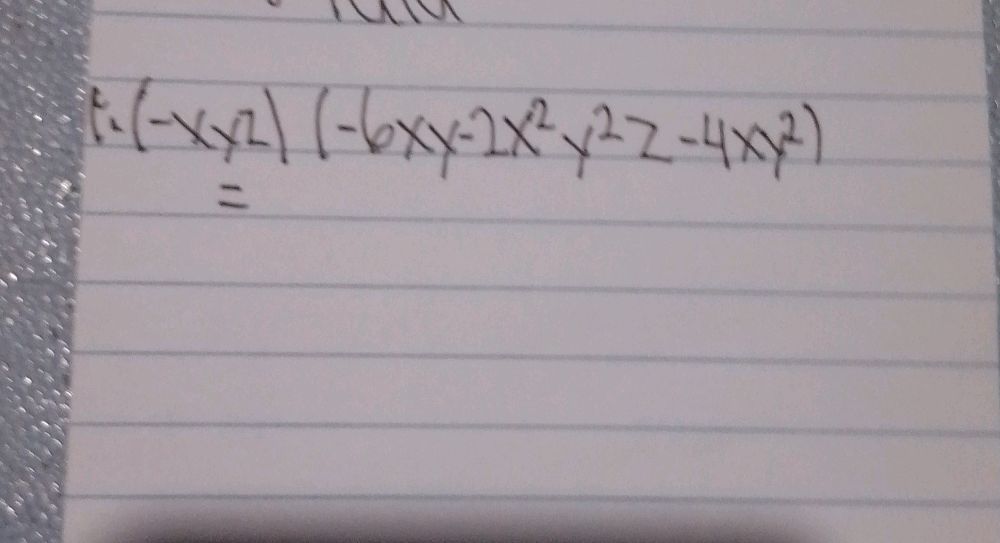 (-xyz) (-6xy-2x²y²z-4xy²)
=